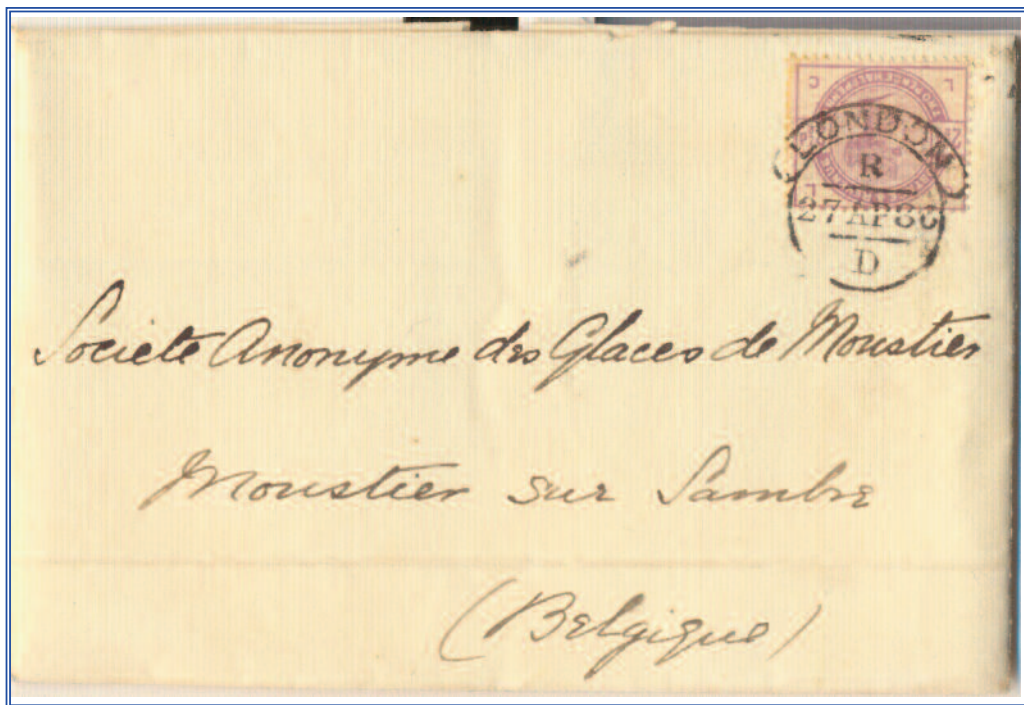 LONDON
R
27 AP 86
D
Societe Anonyme des Glaces de Moustier
Moustier sur Sambre
(Belgique)